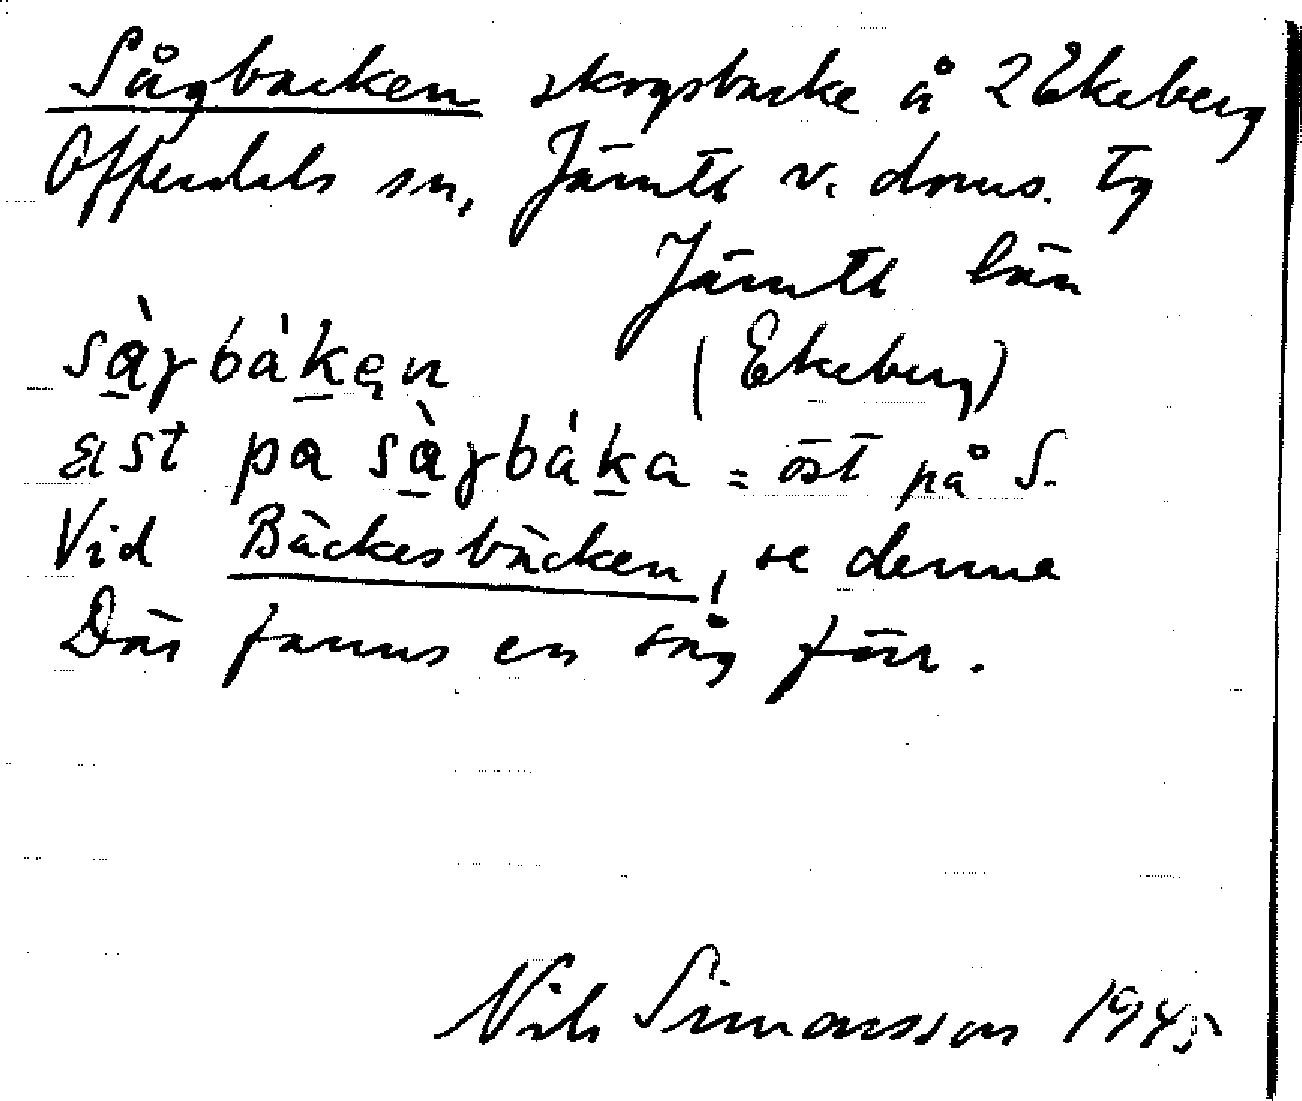 Sågbacken skogsbacke å 2 Ekeberg
Offerdals sn, Jämtl v. doms. tg
Jämtl län
sàgbákęn (Ekeberg)
æst pa sàgbáka = öst på S.
Vid Bäckesbäcken, se denna
Där fanns en såg förr.
Nils Simonsson 1945